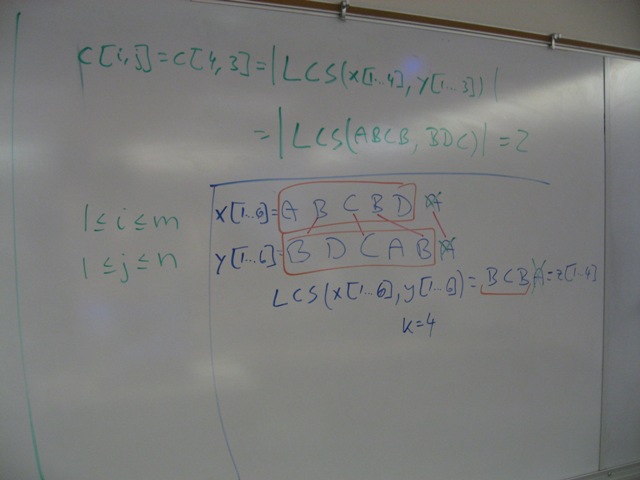 c[i,j]=c[4,3]=|LCS(x[1..4], y[1..3])|
=|LCS(ABCB, BDC)|=2
1≤i≤m
1≤j≤n
x[1..6]=A B C B D A
y[1..6]=B D C A B A
LCS(x[1..6], y[1..6])=BCBA=z[1..4]
k=4